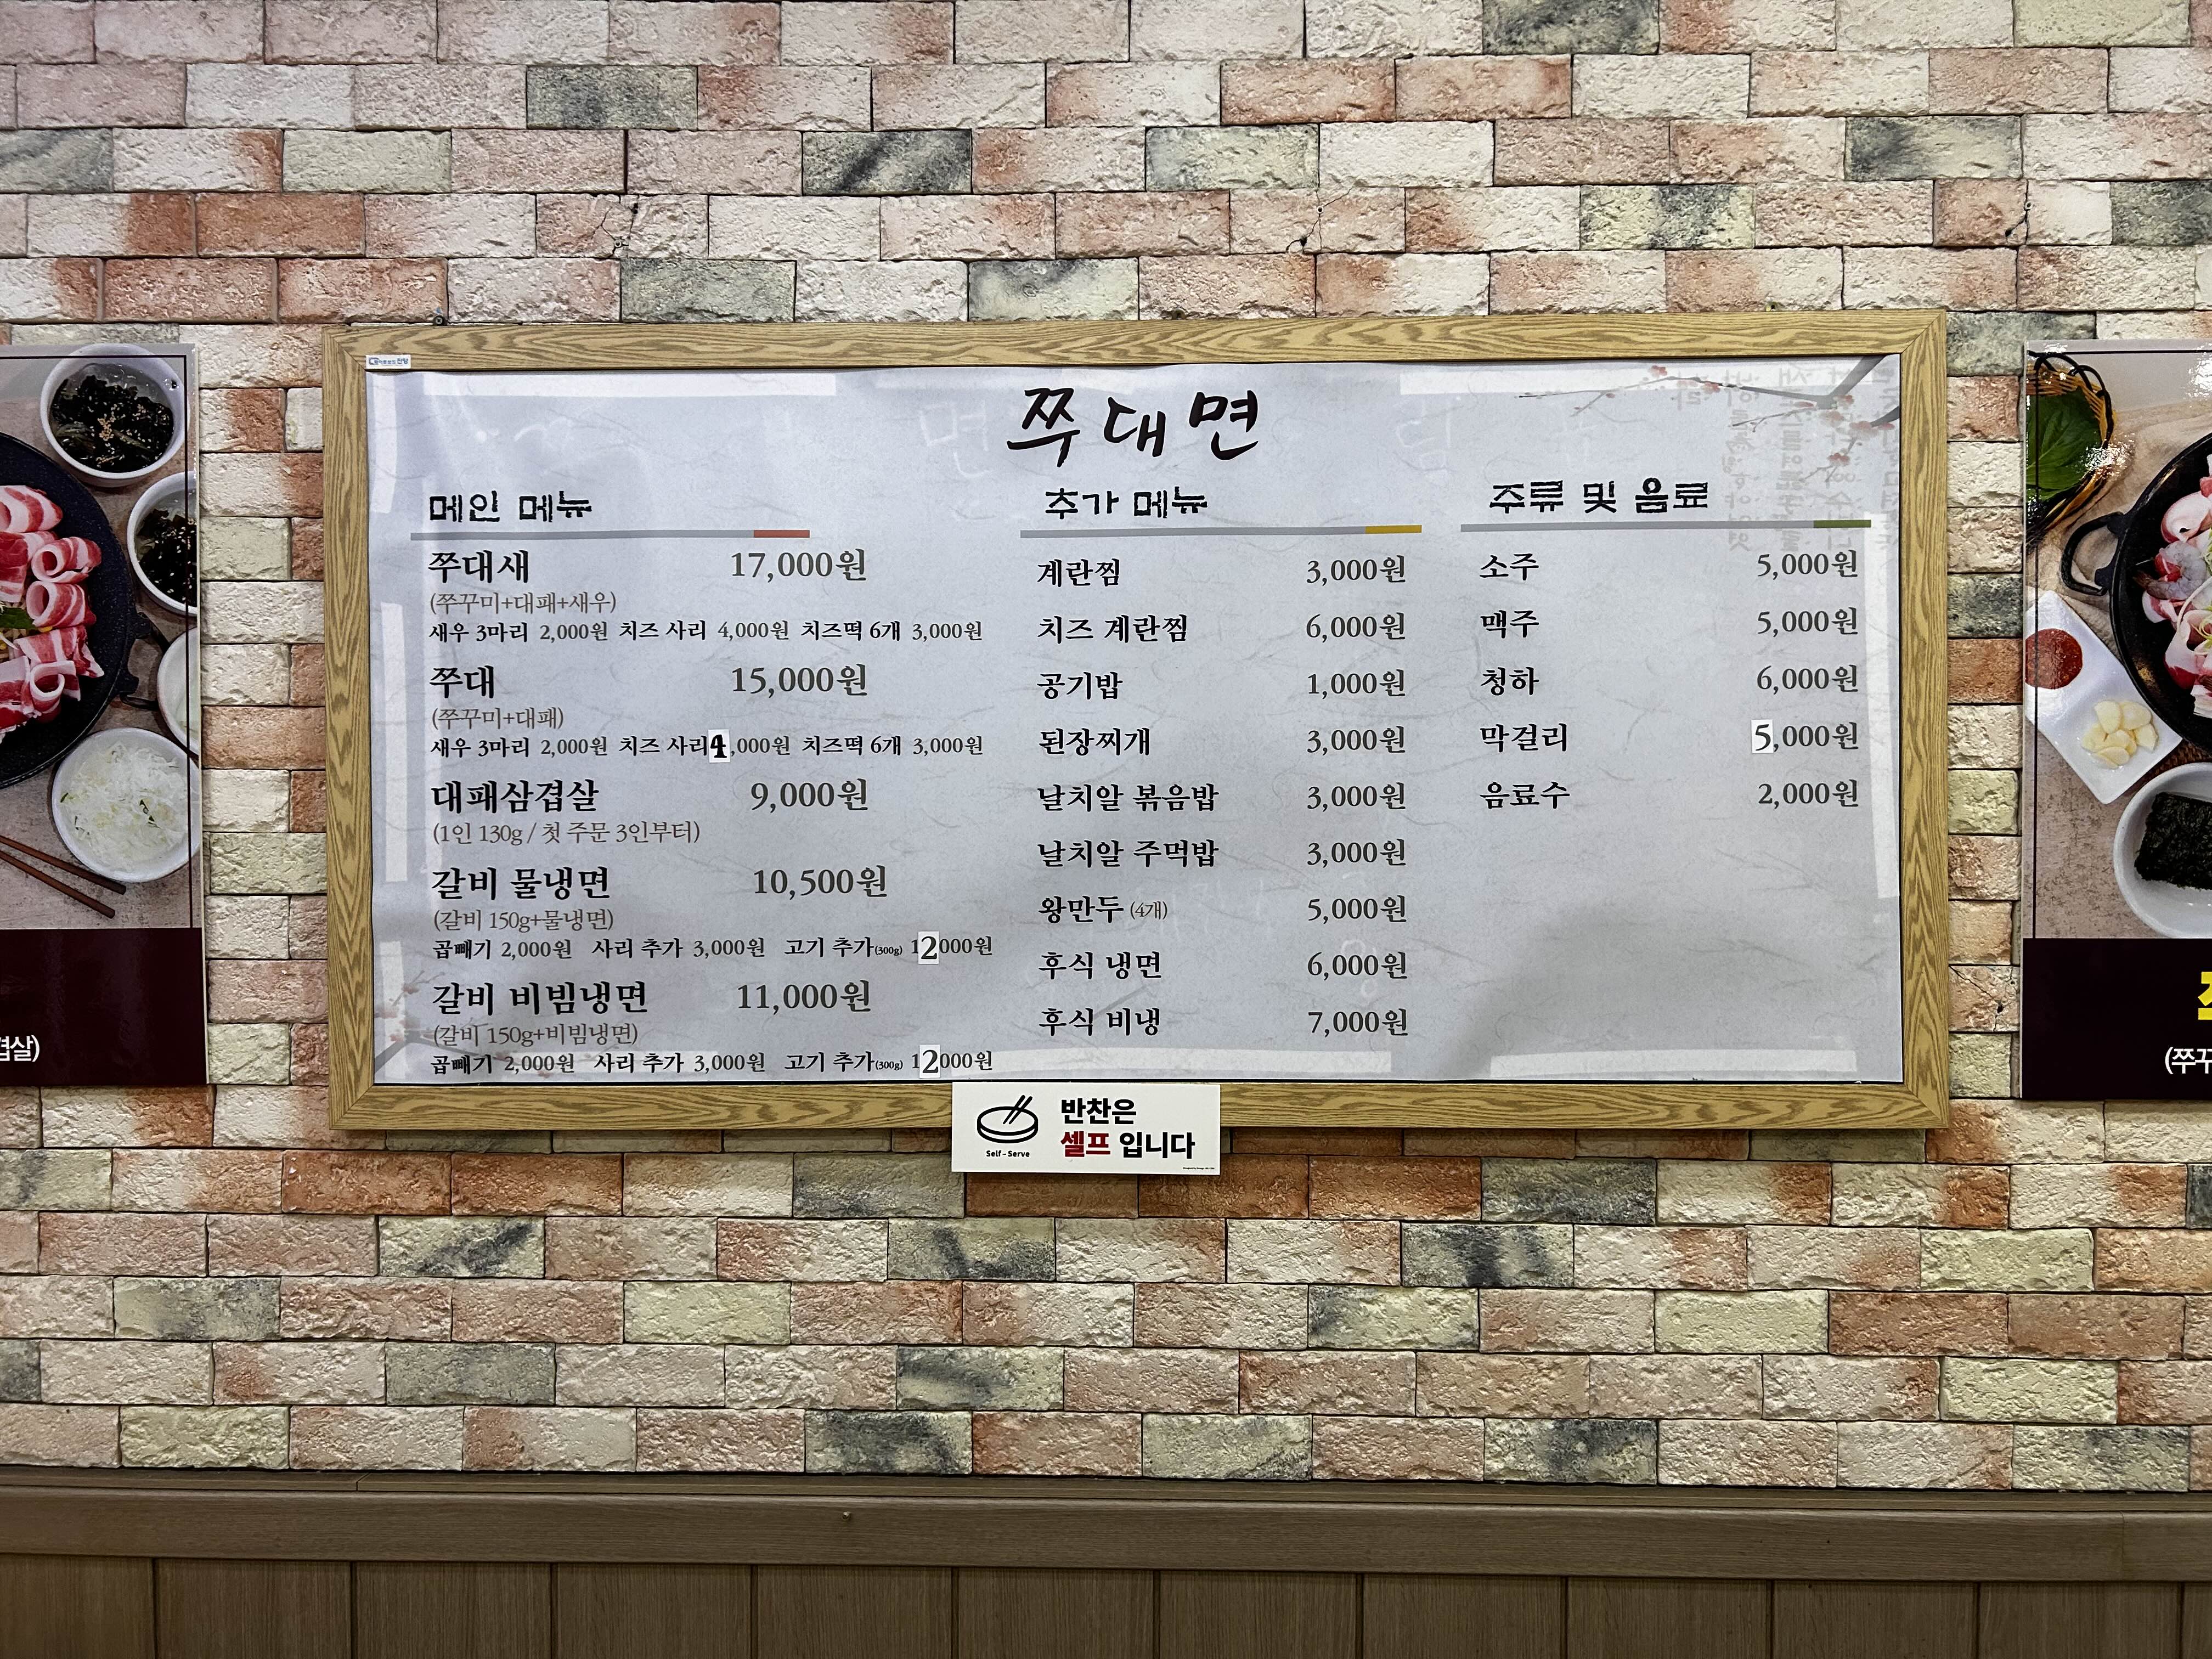 쭈대면
메인 메뉴
쭈대새 17,000원
(쭈꾸미+대패+새우)
새우 3마리 2,000원 치즈 사리 4,000원 치즈떡 6개 3,000원
쭈대 15,000원
(쭈꾸미+대패)
새우 3마리 2,000원 치즈 사리 4,000원 치즈떡 6개 3,000원
대패삼겹살 9,000원
(1인 130g / 첫 주문 3인부터)
갈비 물냉면 10,500원
(갈비 150g+물냉면)
곱빼기 2,000원 사리 추가 3,000원 고기 추가(300g) 12000원
갈비 비빔냉면 11,000원
(갈비 150g+비빔냉면)
곱빼기 2,000원 사리 추가 3,000원 고기 추가(300g) 12000원
추가 메뉴
계란찜 3,000원
치즈 계란찜 6,000원
공기밥 1,000원
된장찌개 3,000원
날치알 볶음밥 3,000원
날치알 주먹밥 3,000원
왕만두 (4개) 5,000원
후식 냉면 6,000원
후식 비냉 7,000원
주류 및 음료
소주 5,000원
맥주 5,000원
청하 6,000원
막걸리 5,000원
음료수 2,000원
반찬은
셀프 입니다
Self-Serve
겹살)
(쭈꾸